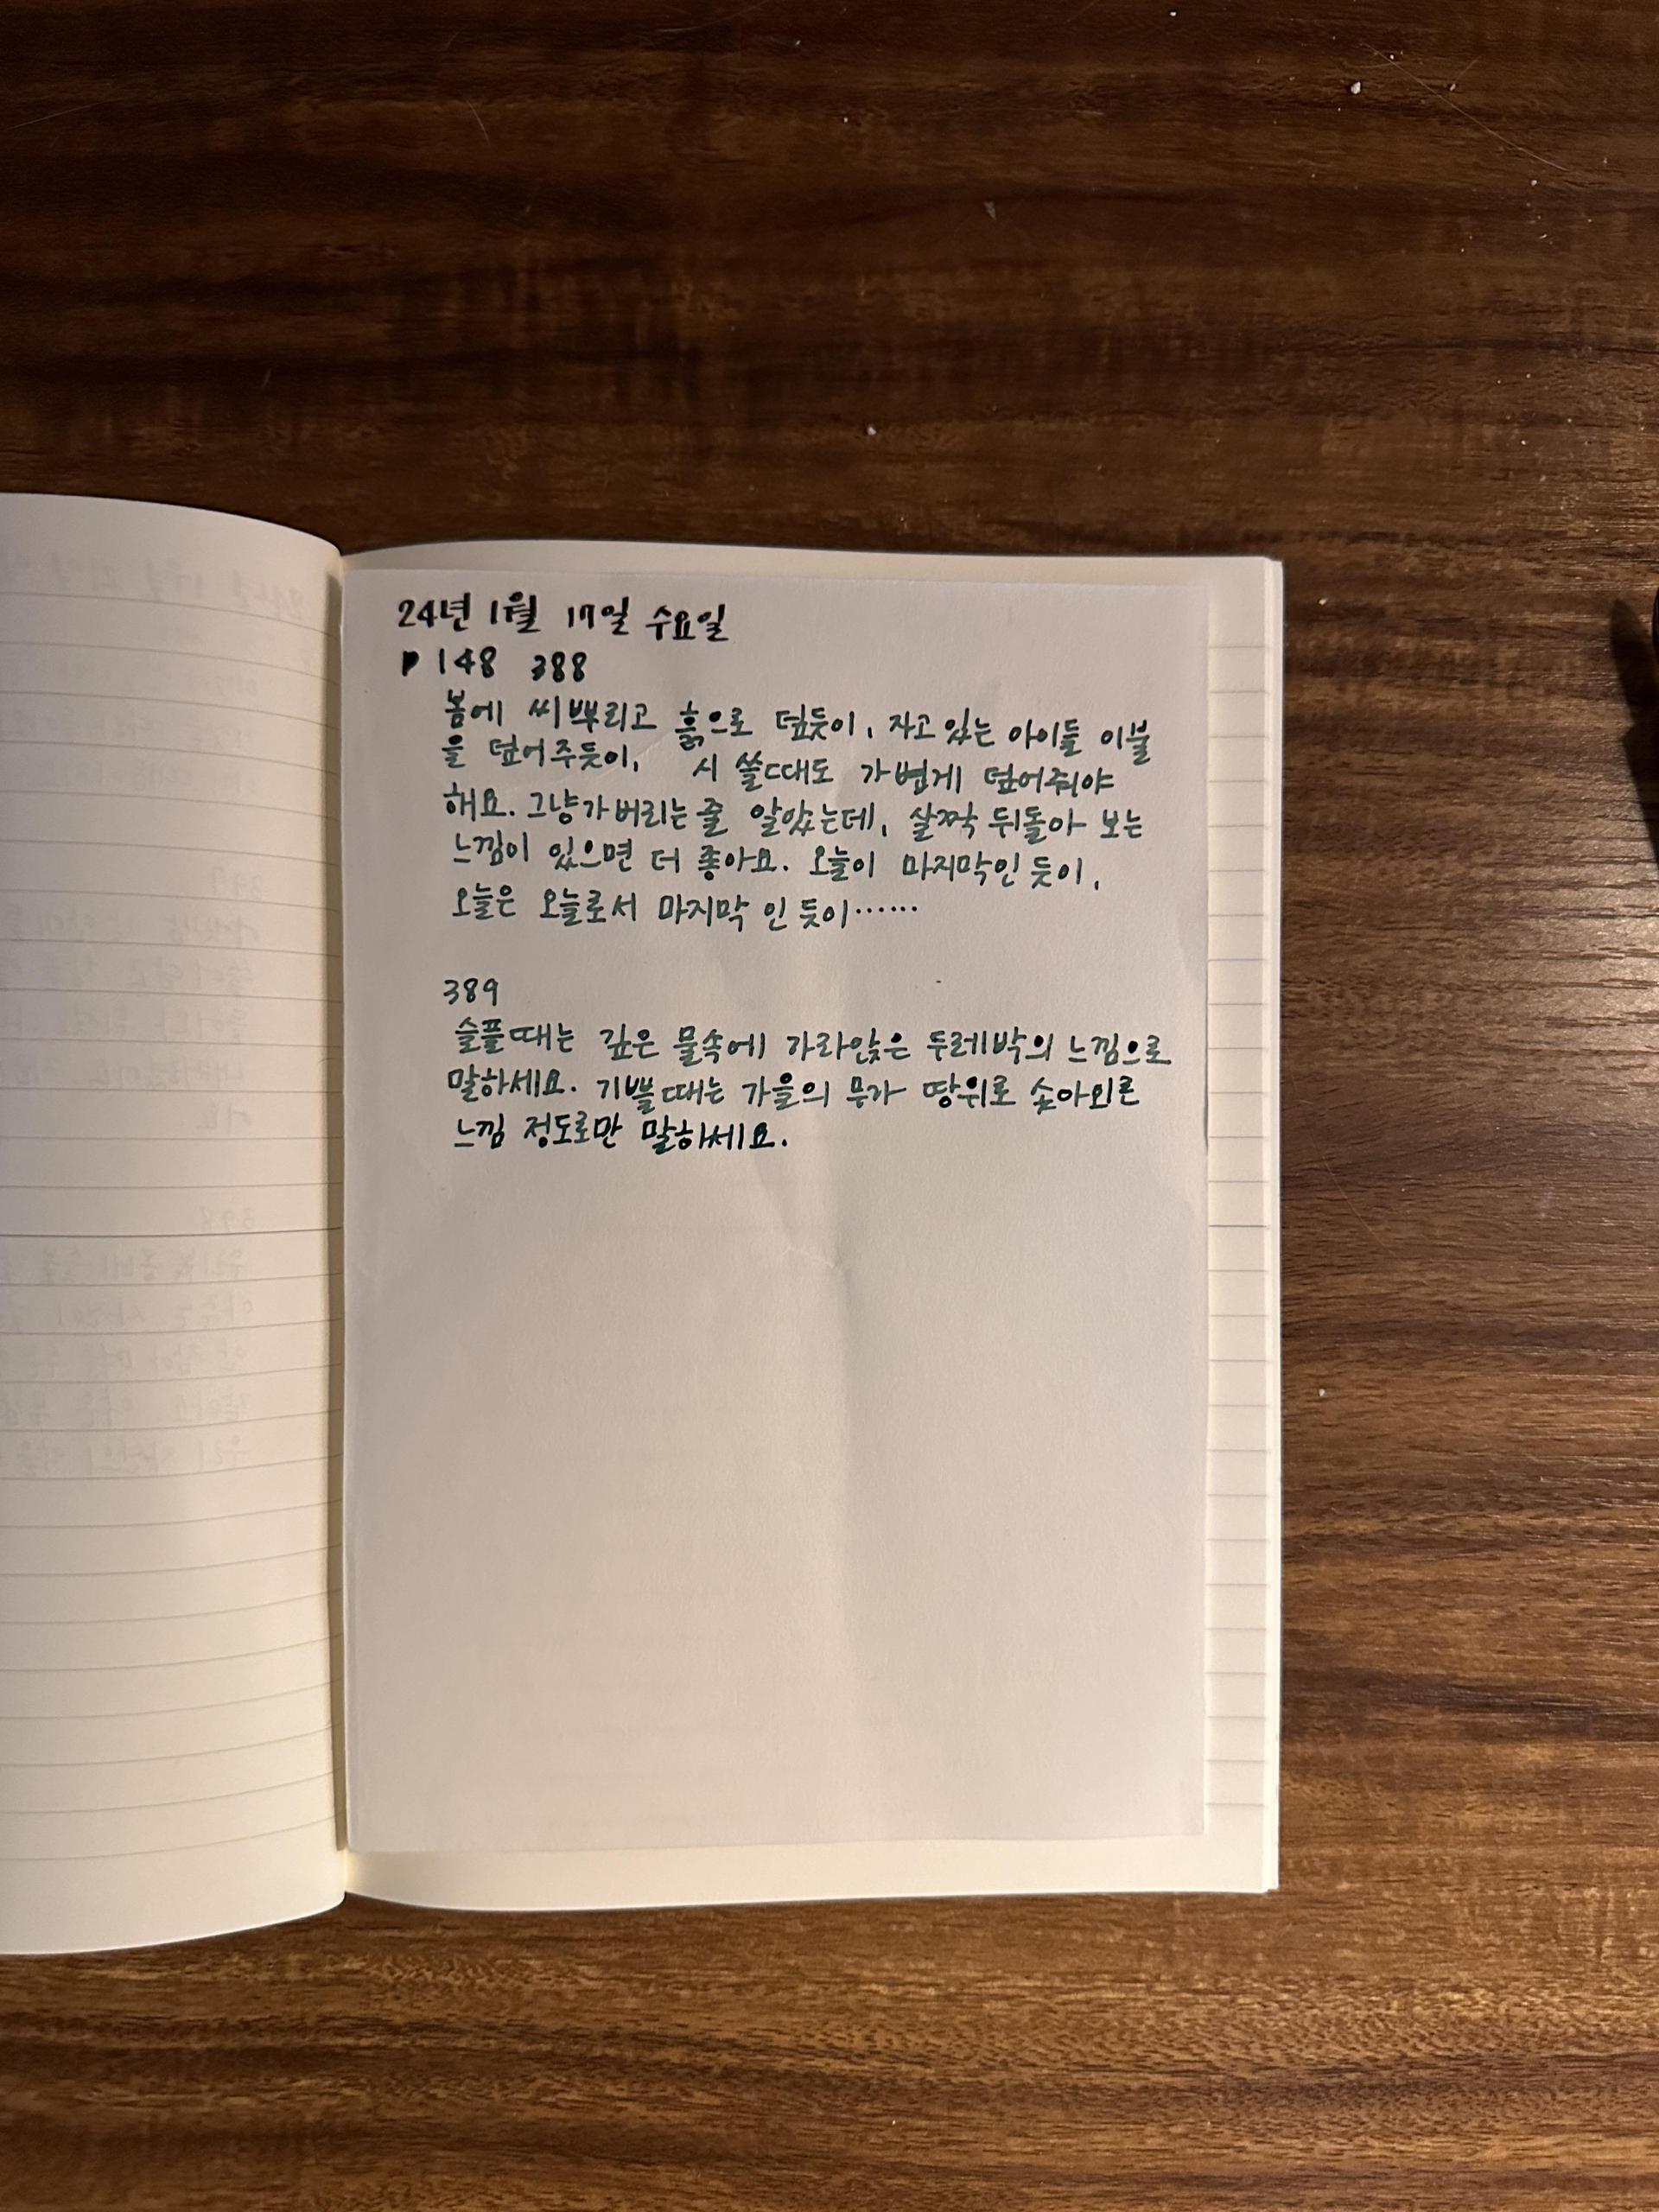 24년 1월 17일 수요일
P 148 388
봄에 씨뿌리고 흙으로 덮듯이, 자고 있는 아이들 이불
을 덮어주듯이, 시 쓸때도 가볍게 덮어줘야
해요. 그냥 가버리는 줄 알았는데, 살짝 뒤돌아 보는
느낌이 있으면 더 좋아요. 오늘이 마지막인 듯이,
오늘은 오늘로서 마지막 인 듯이……
389
슬플때는 깊은 물속에 가라앉은 두레박의 느낌으로
말하세요. 기쁠때는 가을의 무가 땅위로 솟아오른
느낌 정도로만 말하세요.